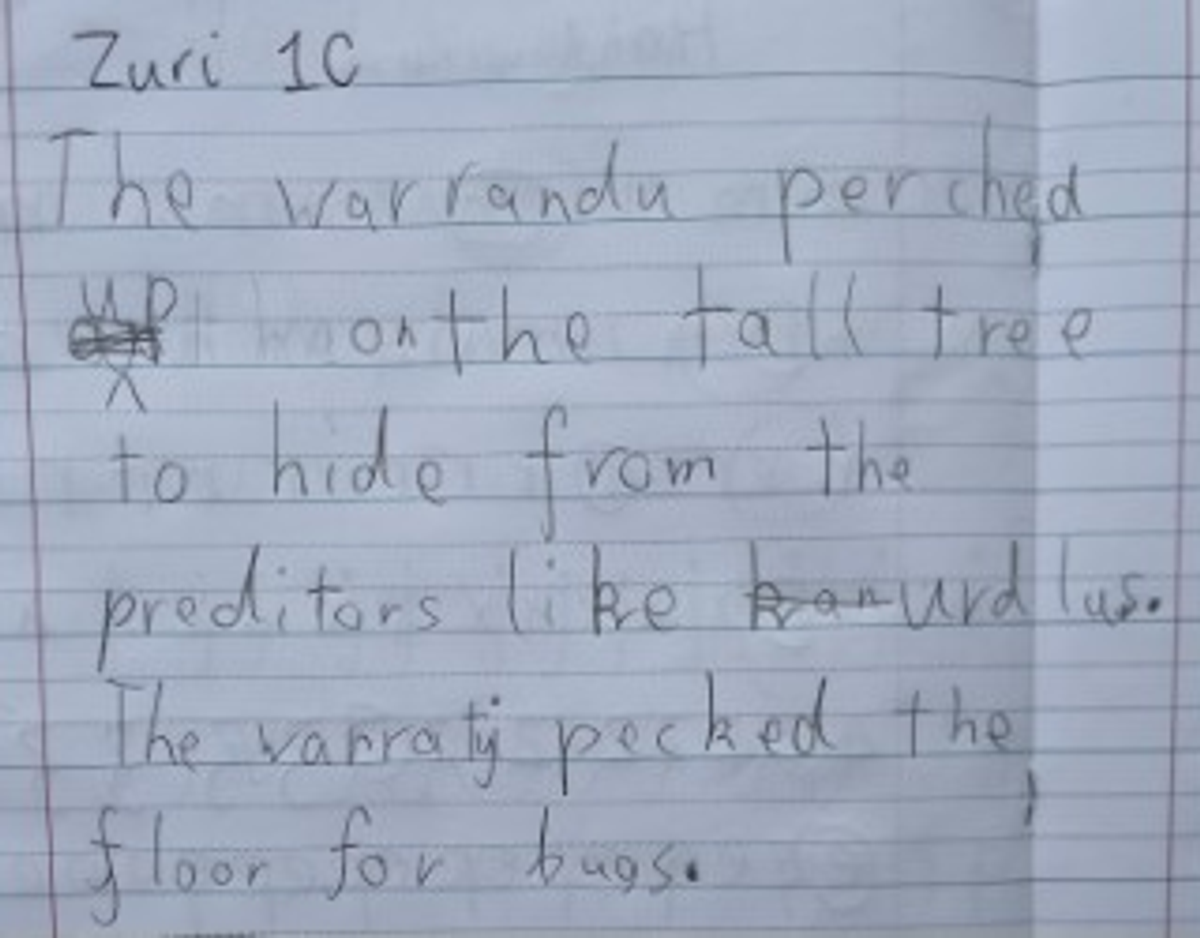 Zuri 1C
The warrandu perched
up on the tall tree
to hide from the
preditors like kan urdlus.
The warratij pecked the
floor for bugs.